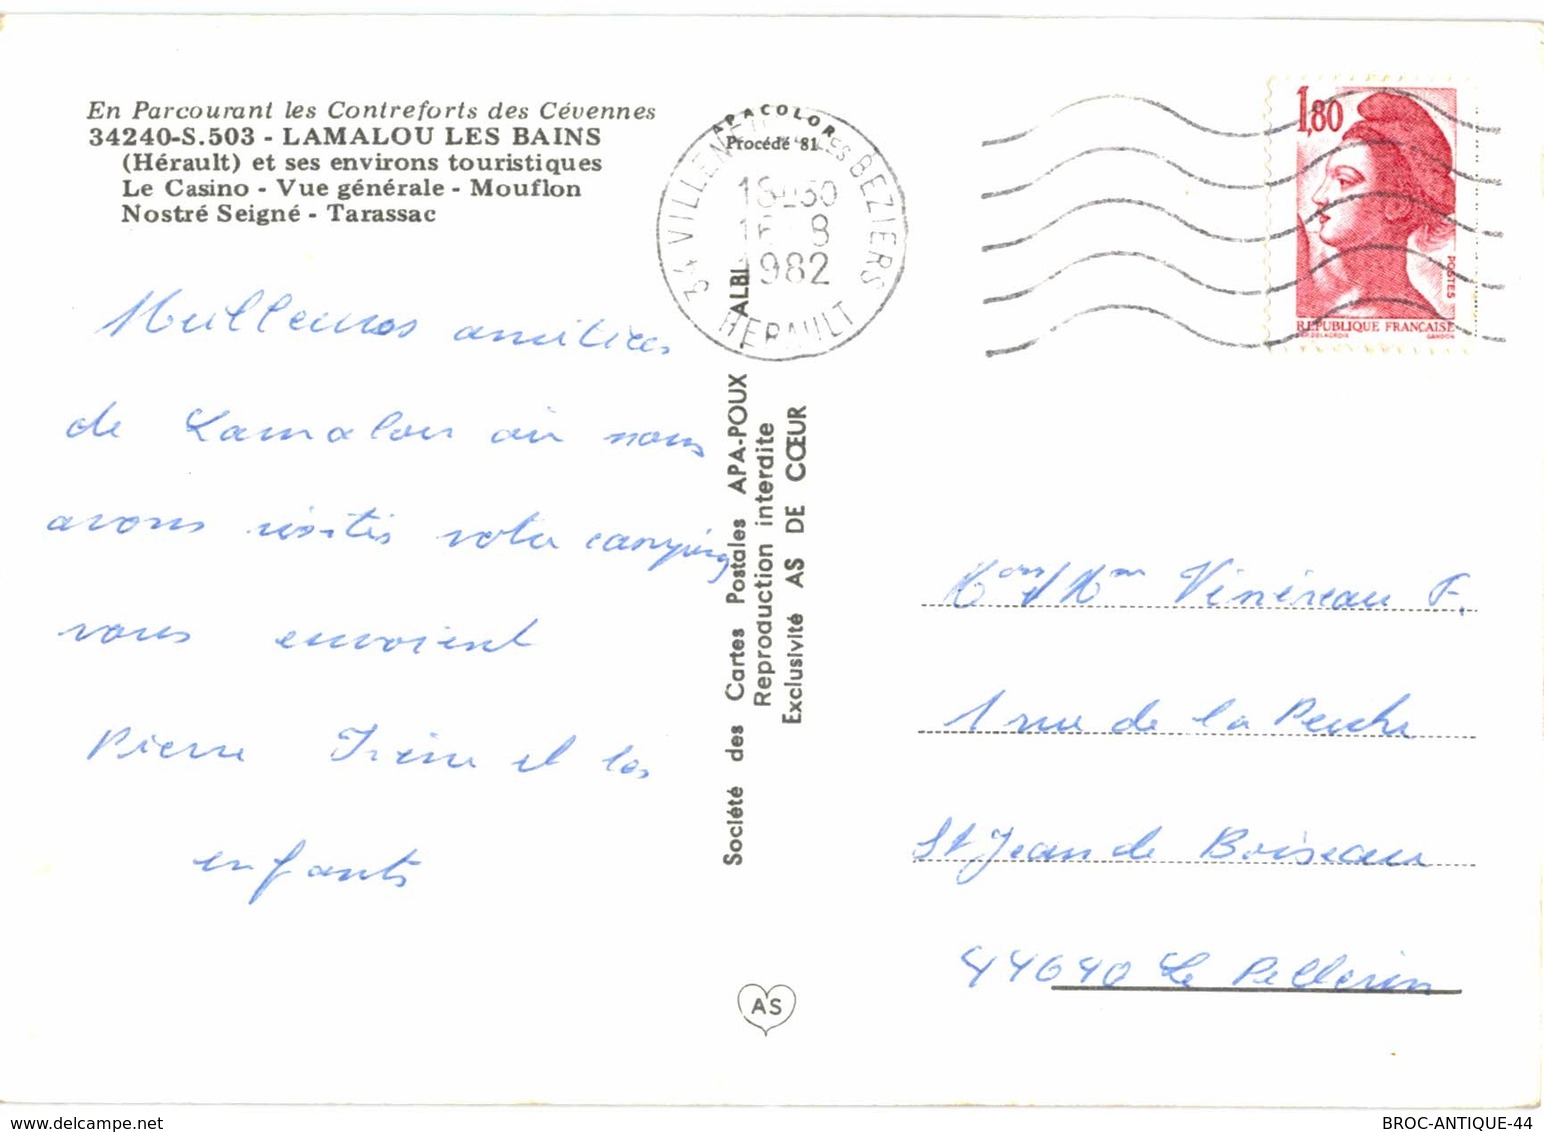 En Parcourant les Contreforts des Cévennes
34240-S.503 - LAMALOU LES BAINS
(Hérault) et ses environs touristiques
Le Casino - Vue générale - Mouflon
Nostré Seigné - Tarassac
Meilleures amitiées
de Lamalou où nous
avons visités votre camping
vous envoient
Pierre Irène et les
enfants
APACOLOR
Procédé 81
34 VILLENEUVE LES BEZIERS
1982
HERAULT
Société des Cartes Postales APA-POUX - ALBI
Reproduction interdite
Exclusivité AS DE CŒUR
AS
1,80
POSTES
REPUBLIQUE FRANÇAISE
DELACROIX GANDON
Mons/Mme Vinéreau F.
1 rue de la Perche
St Jean de Boiseau
44640 Le Pellerin
BROC-ANTIQUE-44